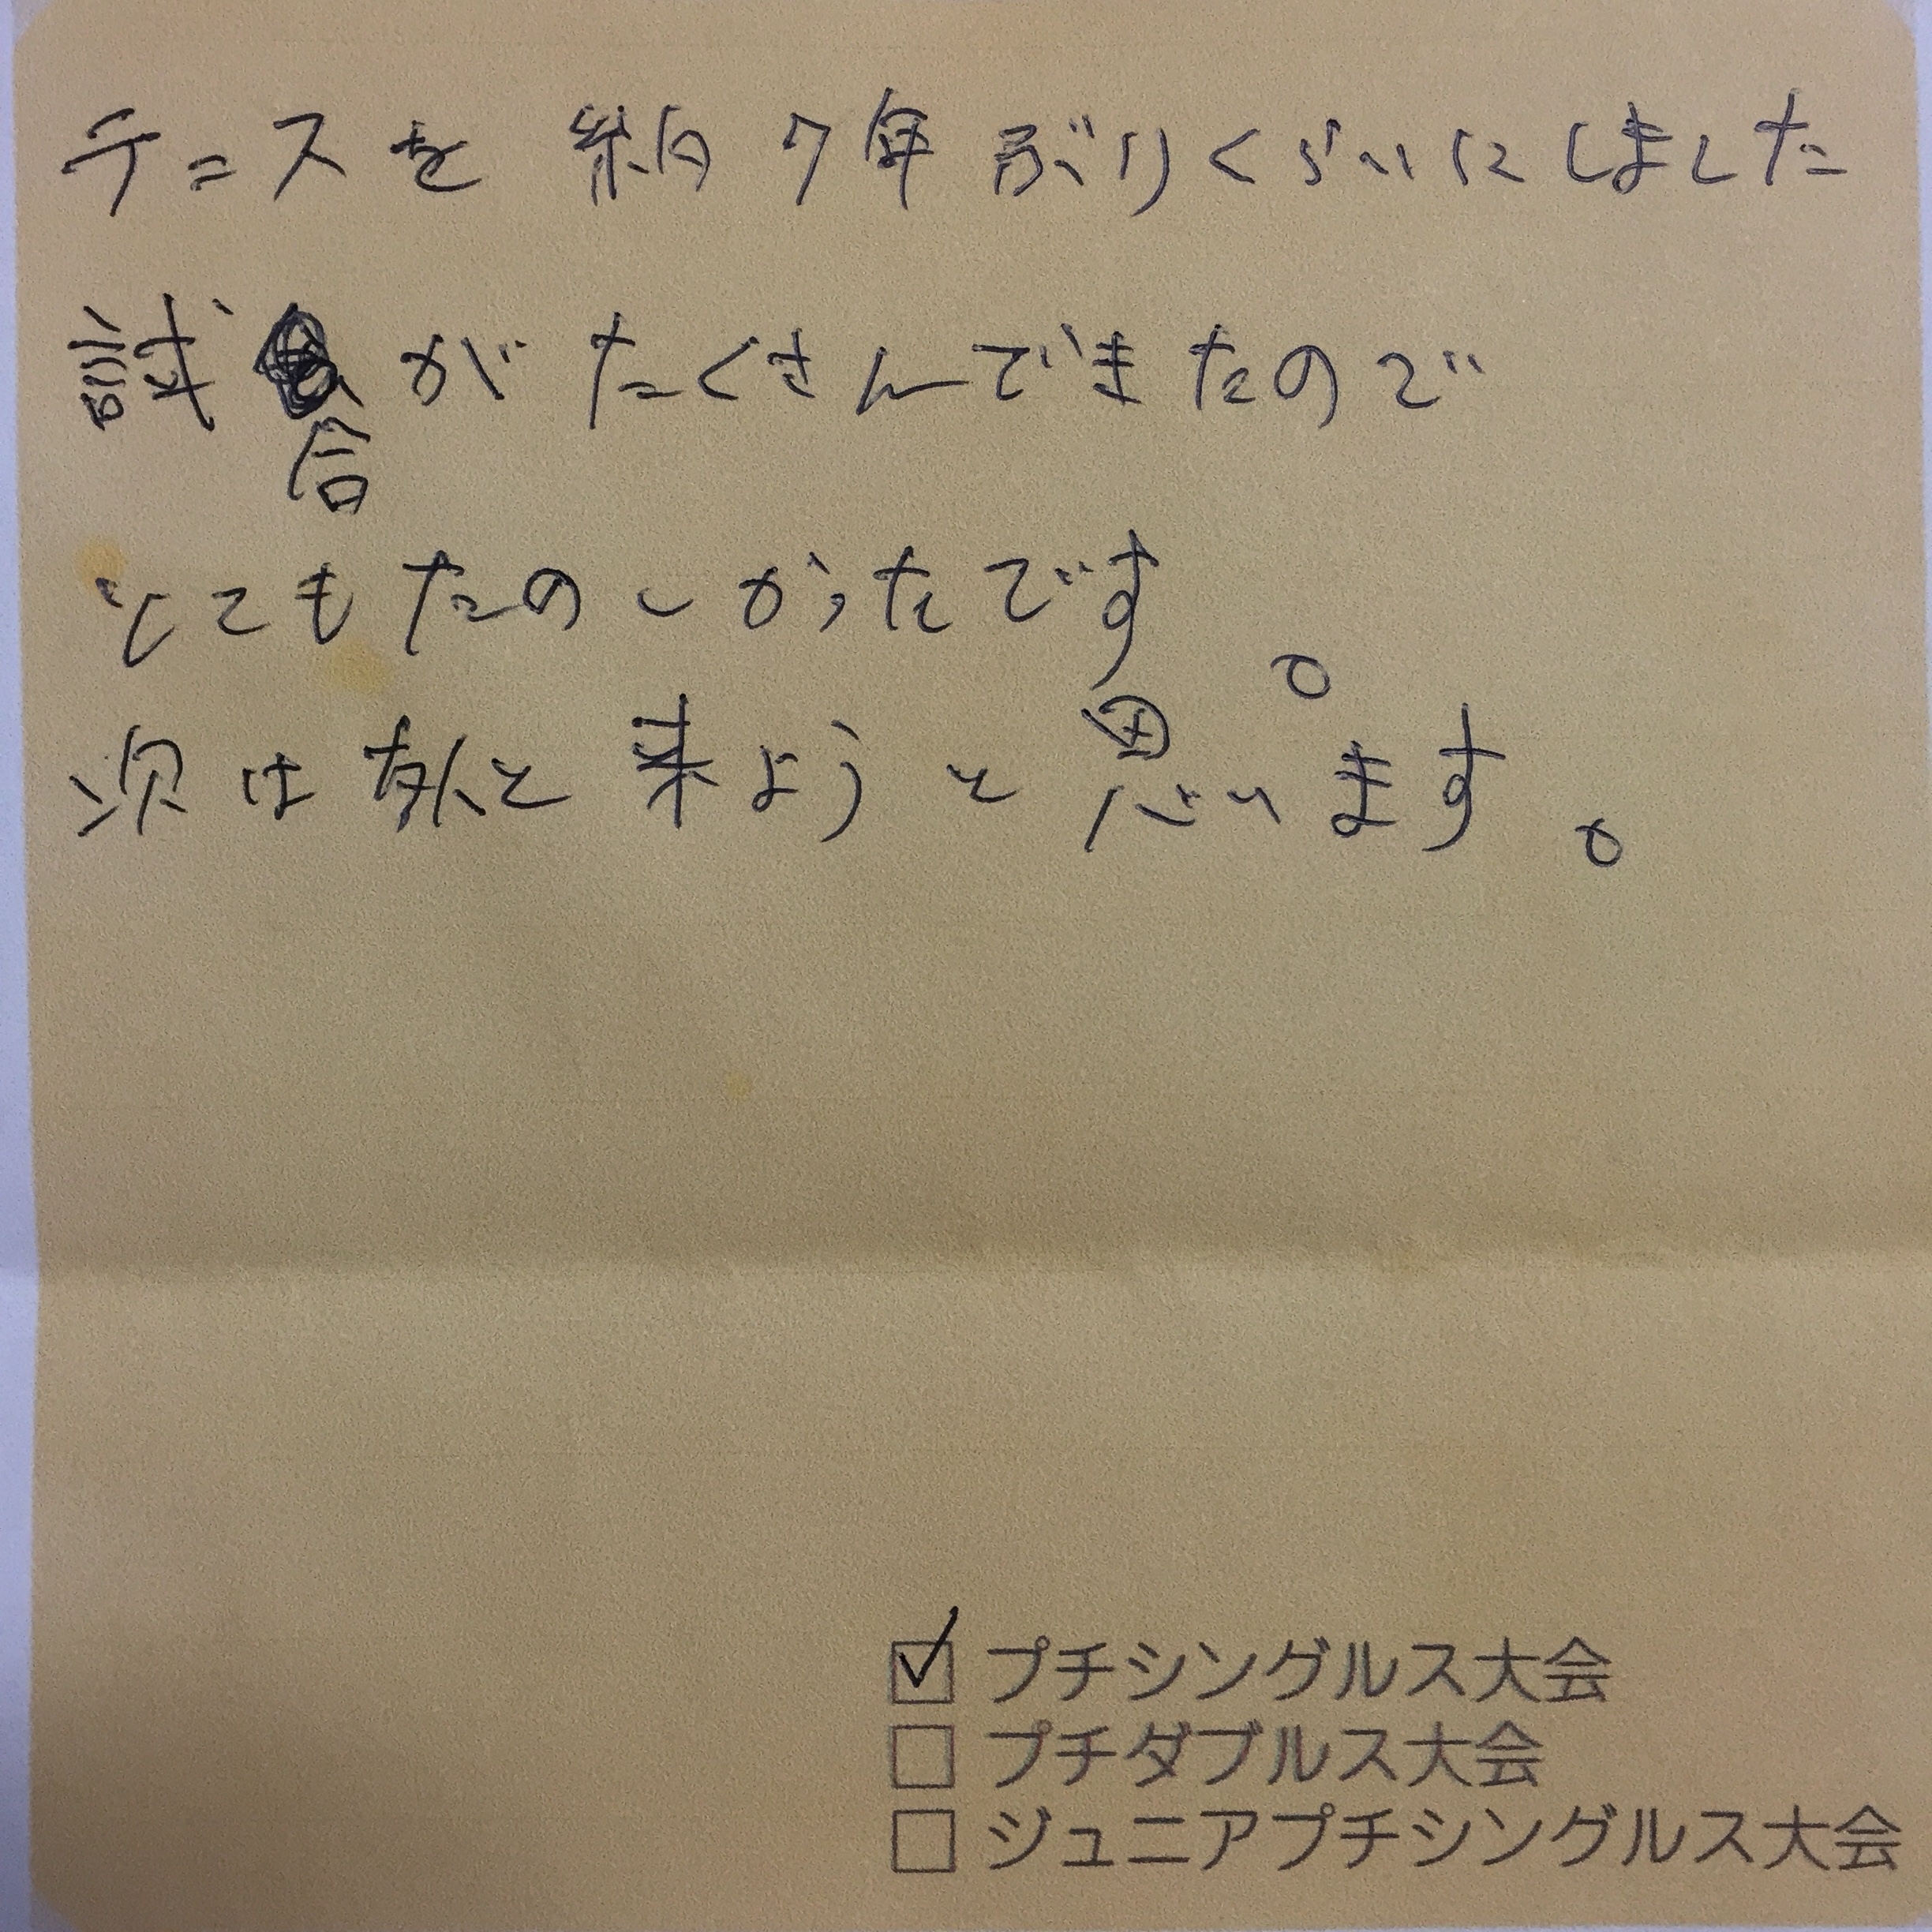 テニスを 約 7年 ぶりくらいにしました
試合がたくさんできたので
とてもたのしかったです。
次は友人と来ようと思います。
プチシングルス大会
プチダブルス大会
ジュニアプチシングルス大会